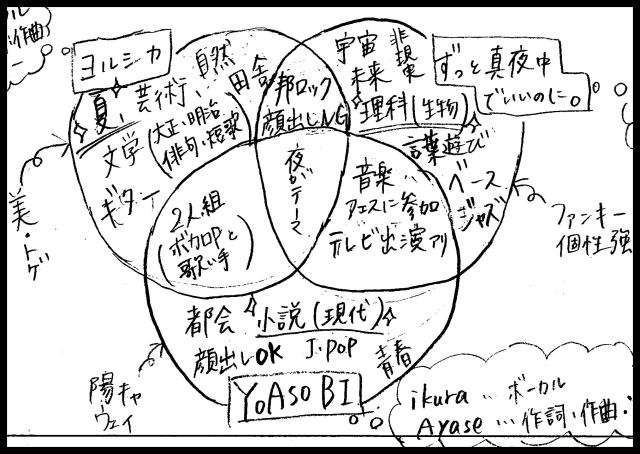 ル
作曲
ヨルシカ
自然
芸術
田舎
夏
文学
(大正・明治
俳句・短歌)
ギター
美・トゲ
邦ロック
顔出しNG
宇宙
非現実
未来
理科(生物)
ずっと真夜中
でいいのに。
言葉遊び
ベース
ジャズ
ファンキー
個性強
夜がテーマ
2人組
(ボカロPと
歌い手)
音楽
フェスに参加
テレビ出演アリ
都会 小説(現代)
顔出しOK J-POP
青春
陽キャ
ウェイ
YOASOBI
ikura … ボーカル
Ayase … 作詞・作曲・